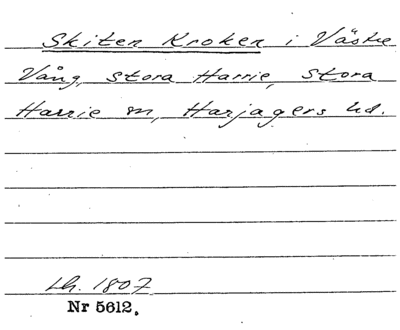 Skiten Kroken i Västre
Vång, Stora Harrie, Stora
Harrie sn, Harjagers hd.
Lh. 1807
Nr 5612.